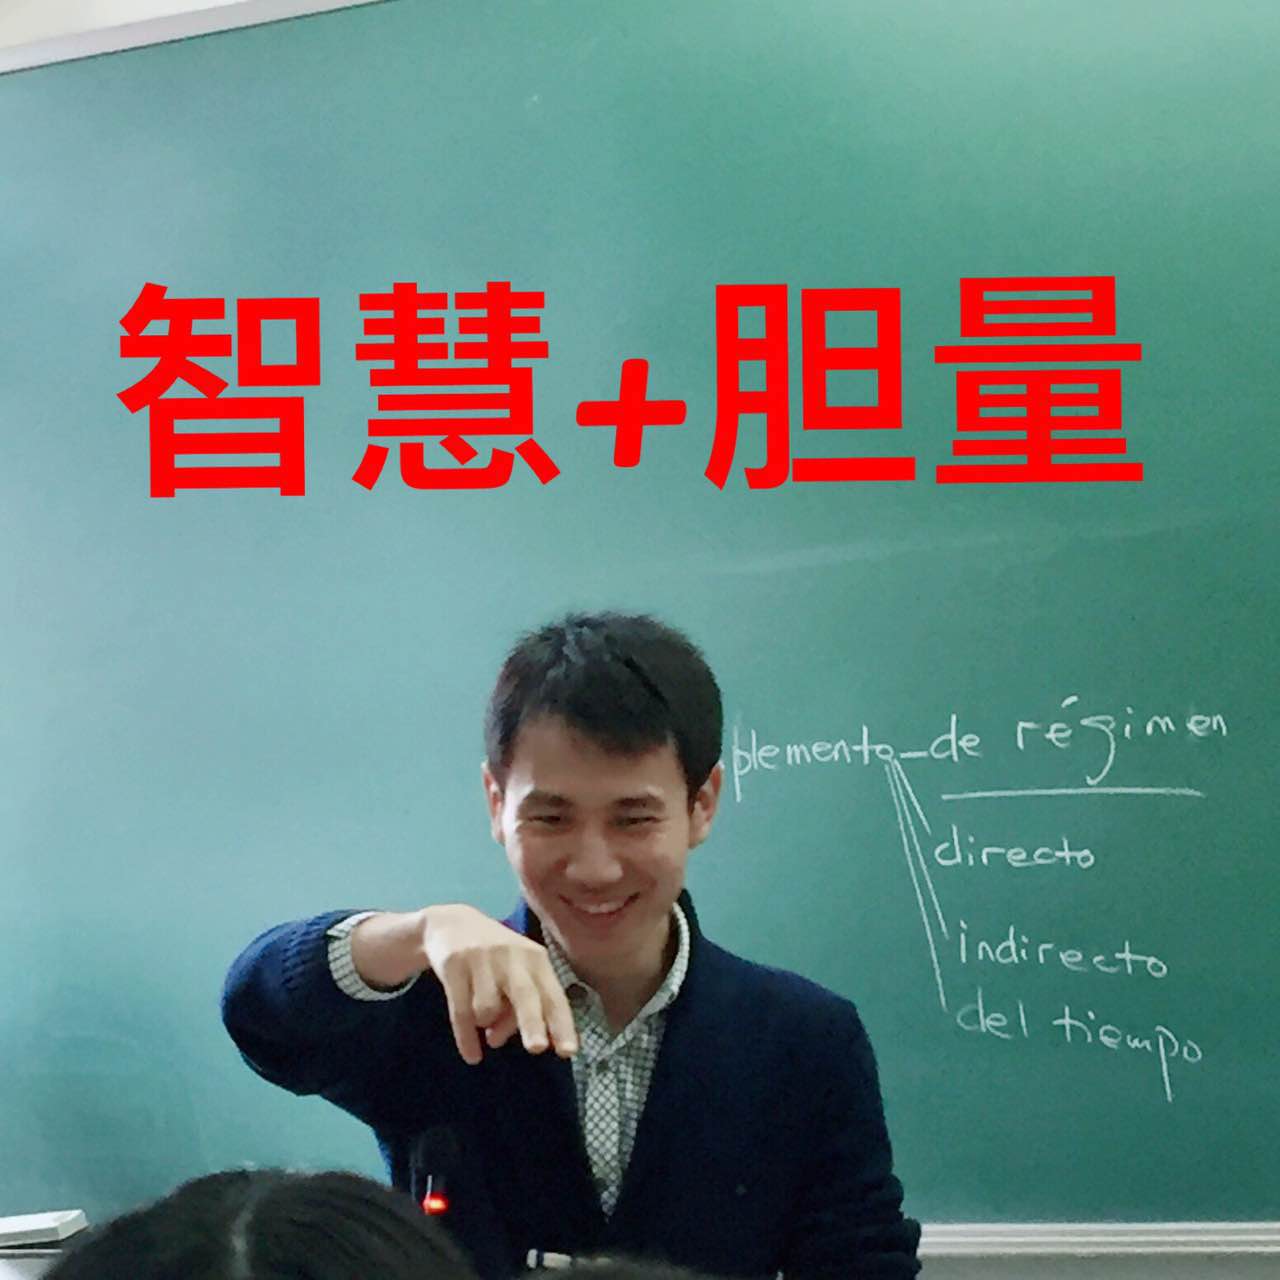 智慧+胆量
plemento—de régimen
directo
indirecto
del tiempo